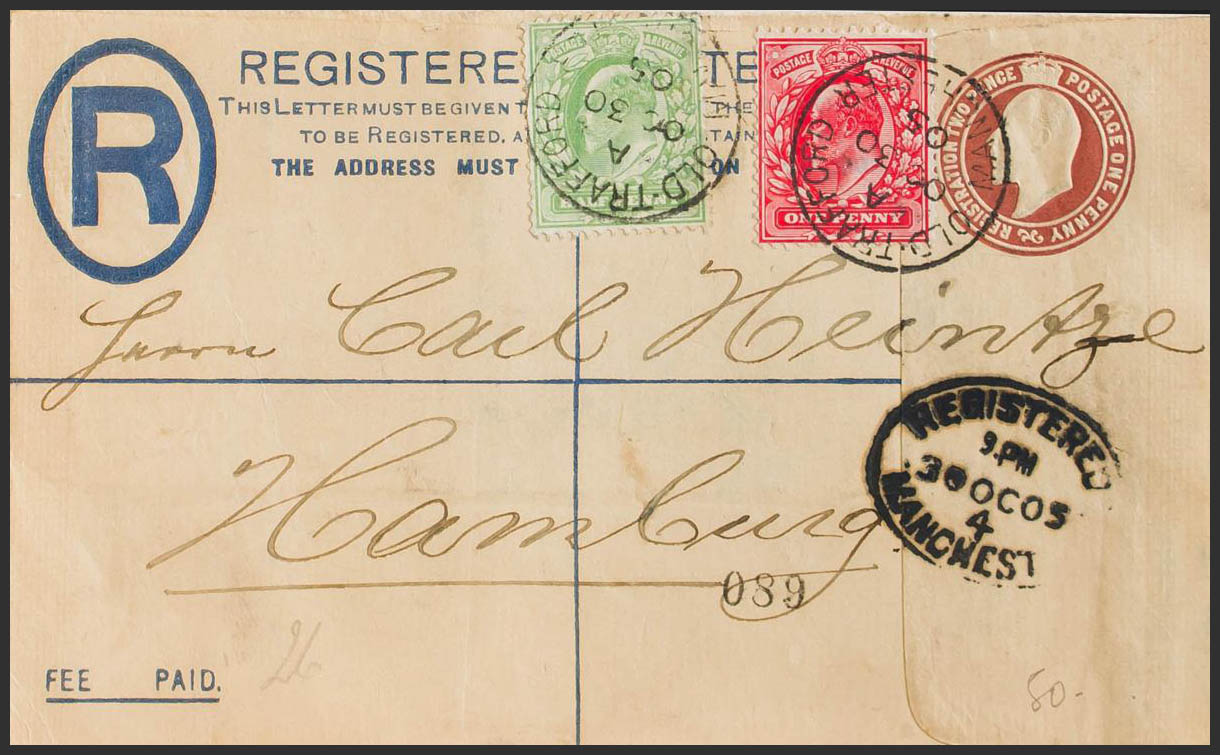 R
REGISTERE TE
THIS LETTER MUST BE GIVEN T THE
TO BE REGISTERED, A TAIN
THE ADDRESS MUST ON
POSTAGE & REVENUE
OLD TRAFFORD
A
OC 30
05
POSTAGE & REVENUE
ONE PENNY
OLD TRAFFORD MANCHESTER
A
OC 30
05
REGISTRATION TWO PENCE POSTAGE ONE PENNY &
Herrn Carl Heintze
Hamburg
REGISTERED
9.PM
30 OC 05
4
MANCHEST
089
26
FEE PAID.
80-